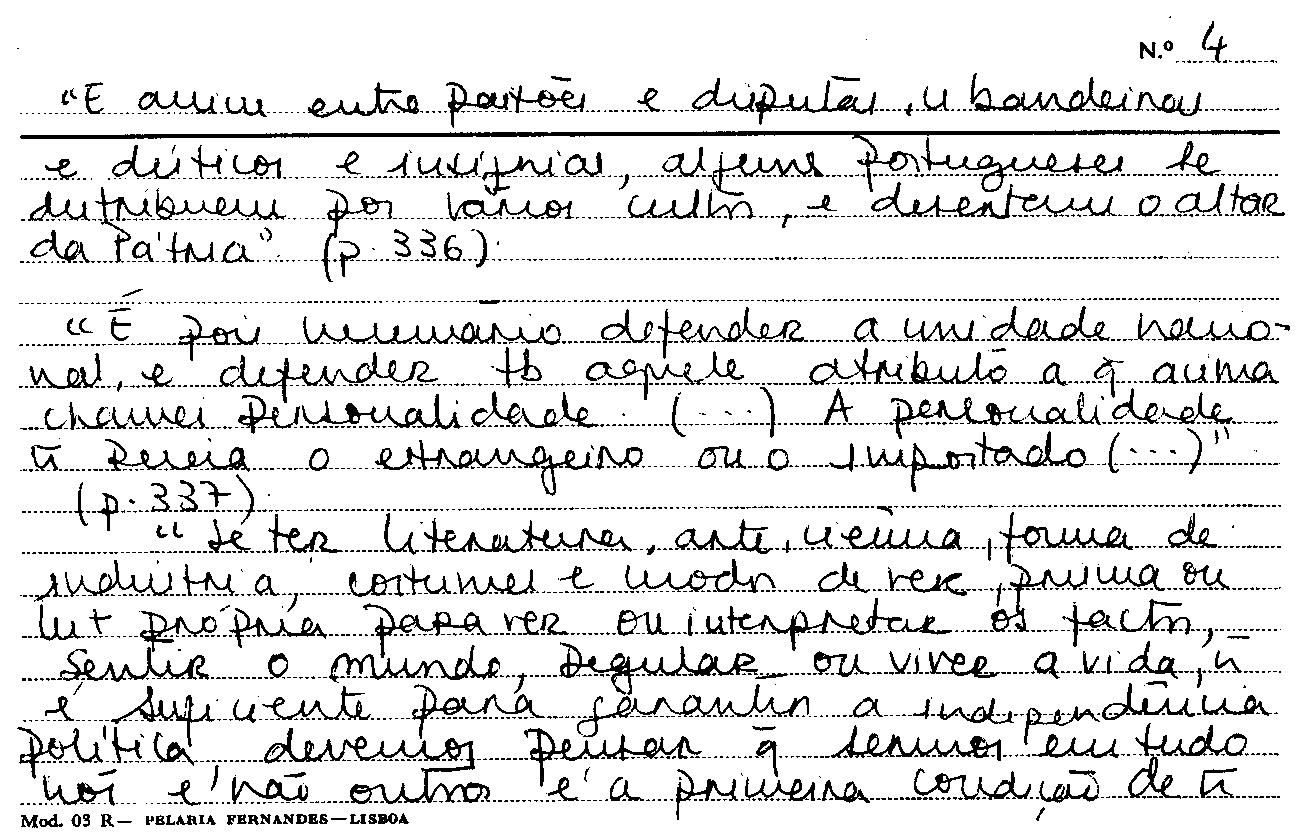 N.º 4
"E assim entre paixões e disputas, e bandeiras
e dísticos e insígnias, alguns portugueses se
distribuem por vários cultos, e desertam o altar
da Pátria" (p. 336).
"É pois necessário defender a unidade nacio-
nal, e defender tb aquele atributo a q̄ acima
chamei personalidade. (...) A personalidade
ñ receia o estrangeiro ou o importado (...)"
(p. 337).
"Se ter literatura, arte, ciência, forma de
indústria, costumes e modos de ver, prisma ou
luz própria para ver ou interpretar os factos,
sentir o mundo, regular ou viver a vida, ñ
é suficiente para garantir a independência
política, devemos pensar q̄ sermos em tudo
nós e não outros é a primeira condição de ñ
Mod. 03 R— PELARIA FERNANDES—LISBOA